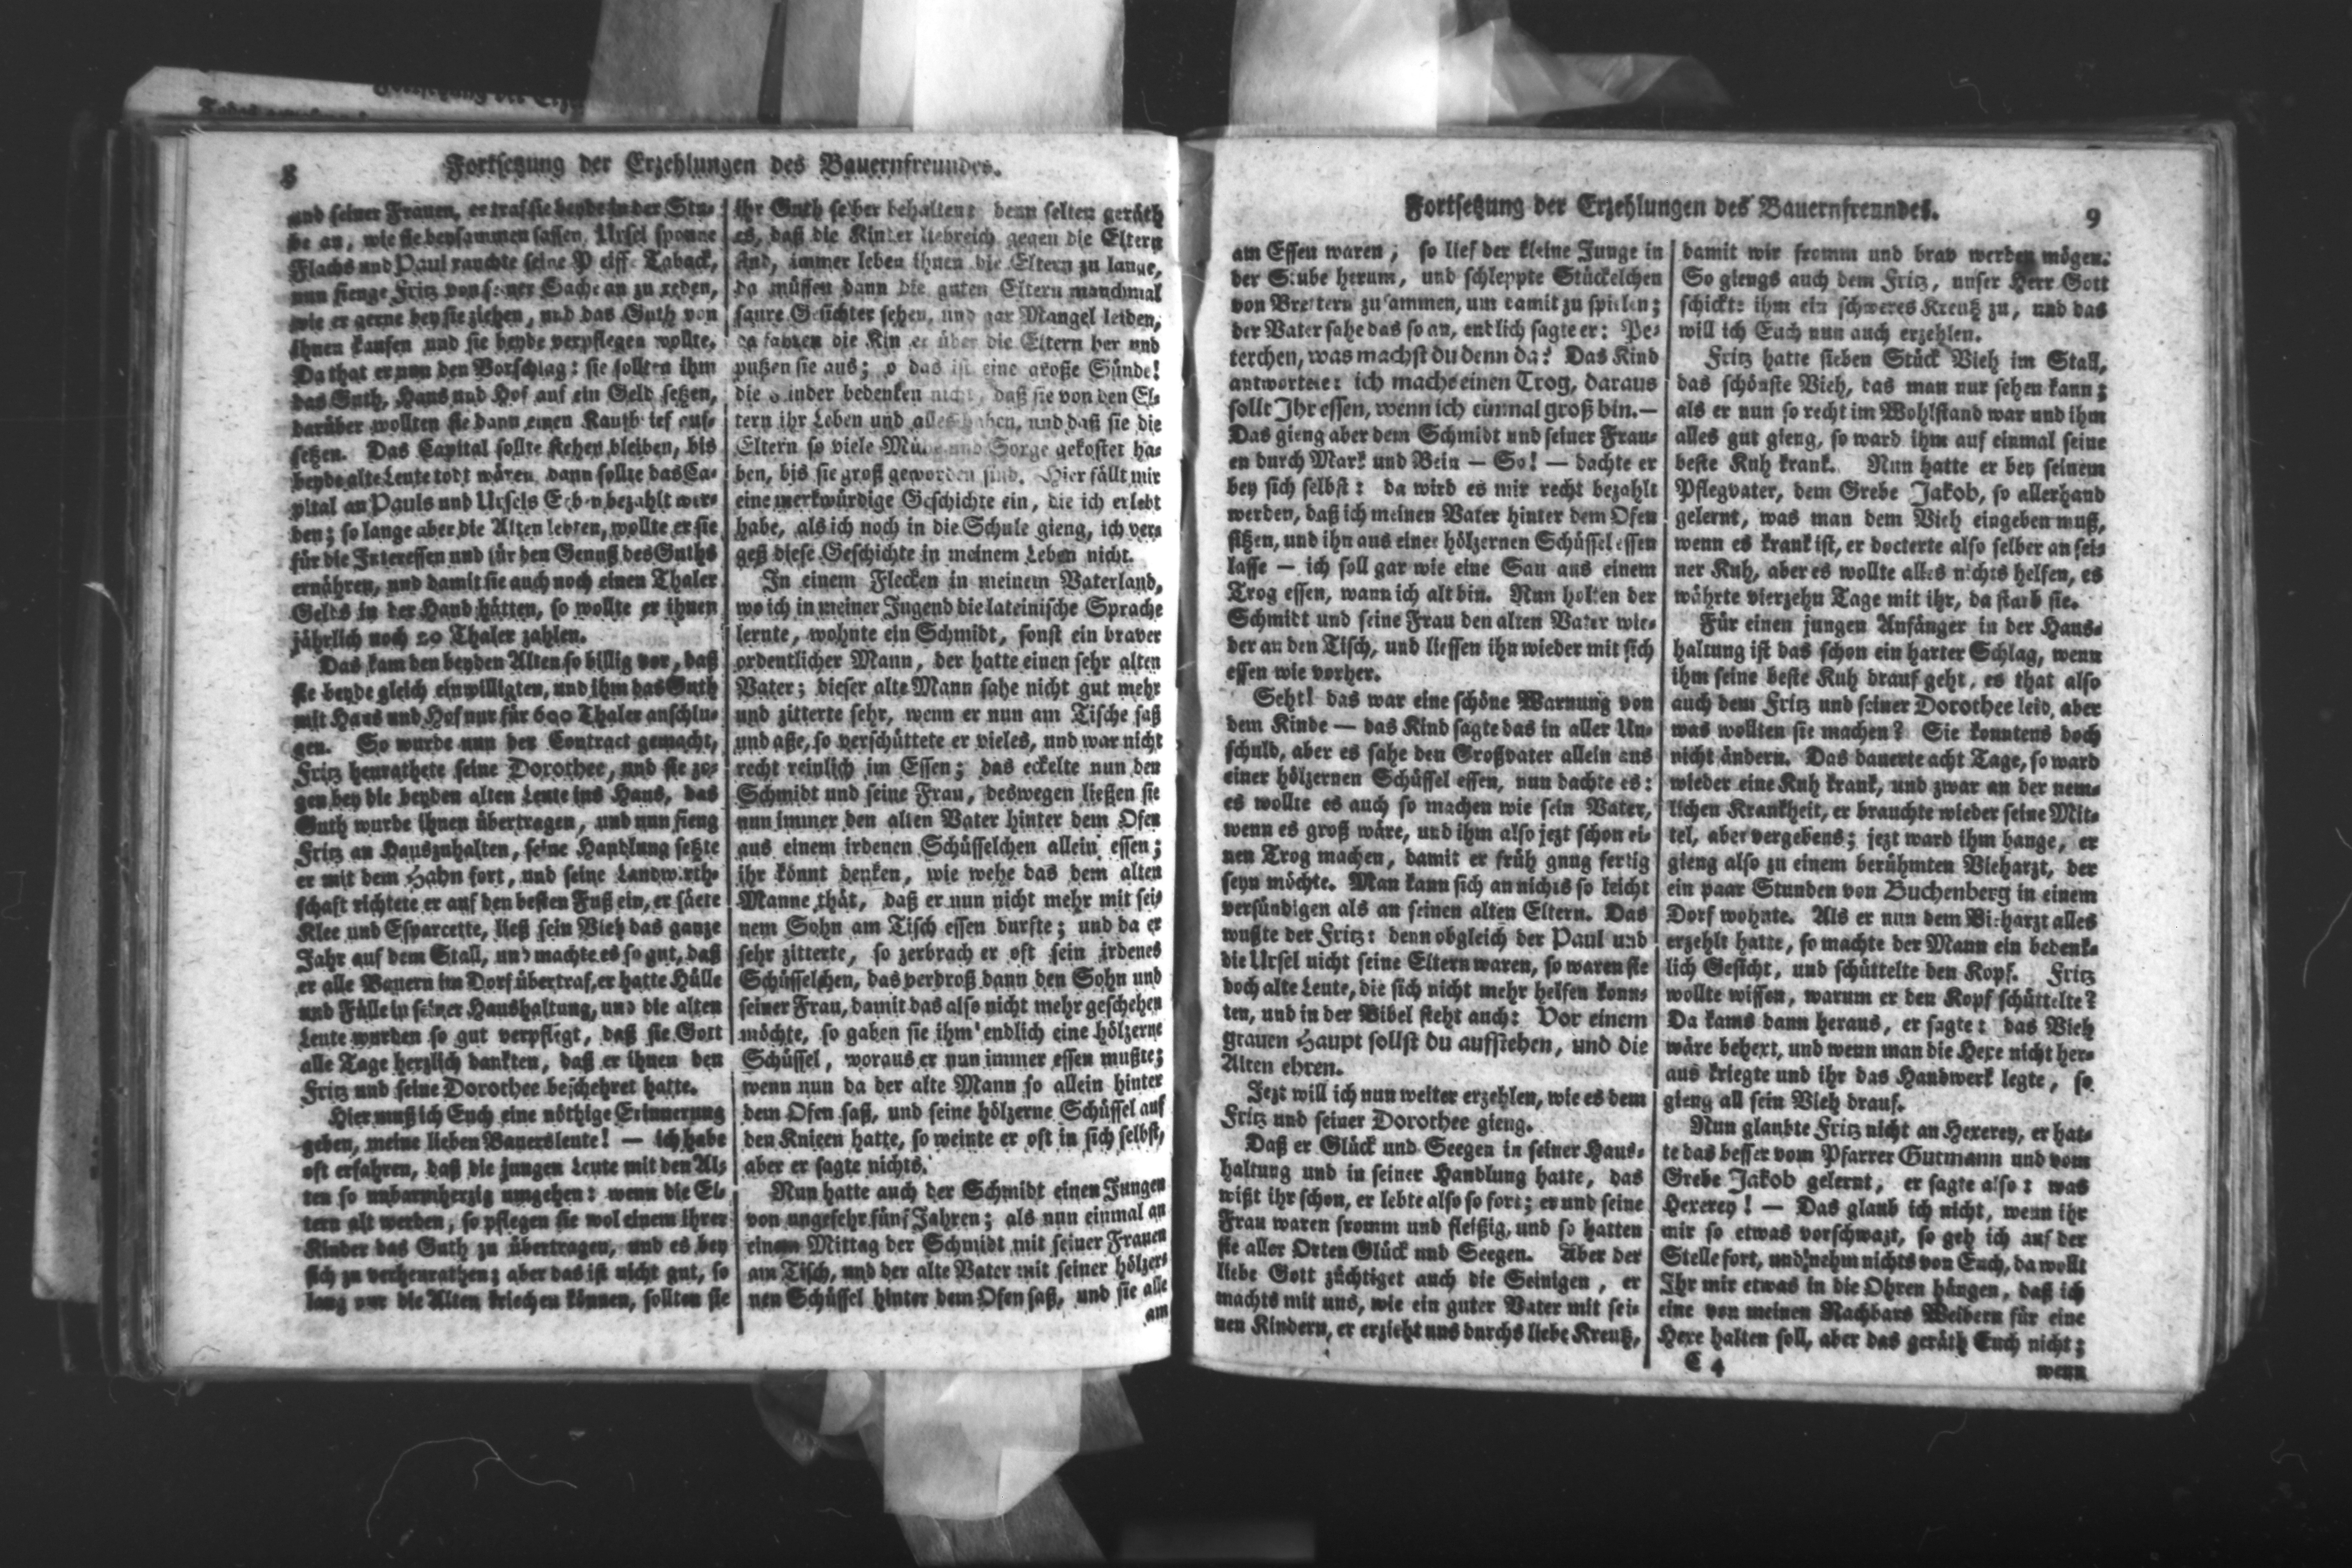 8
Fortsetzung der Erzehlungen des Bauernfreundes.
und seiner Frauen, er traf sie beyde in der Stu-
be an, wie sie beysammen sassen, Ursel sponne
Flachs und Paul rauchte seine Peiffe Taback,
nun fienge Fritz von seiner Sache an zu reden,
wie er gerne bey sie ziehen, und das Guth von
ihnen kaufen und sie beyde verpflegen wollte,
Da that er nun den Vorschlag: sie sollten ihm
das Guth, Haus und Hof auf ein Geld setzen,
darüber wollten sie dann einen Kaufbrief auf-
setzen. Das Capital sollte stehen bleiben, bis
beyde alte Leute todt wären, dann sollte das Ca-
pital an Pauls und Ursels Erben bezahlt wer-
den; so lange aber die Alten lebten, wollte er sie
für die Interessen und für den Genuß des Guths
ernähren, und damit sie auch noch einen Thaler
Gelds in der Hand hätten, so wollte er ihnen
jährlich noch 20 Thaler zahlen.
Das kam den beyden Alten so billig vor, daß
sie beyde gleich einwilligten, und ihm das Guth
mit Haus und Hof nur für 600 Thaler anschlu-
gen. So wurde nun der Contract gemacht,
Fritz heurathete seine Dorothee, und sie zo-
gen bey die beyden alten Leute ins Haus, das
Guth wurde ihnen übertragen, und nun fieng
Fritz an Hauszuhalten, seine Handlung setzte
er mit dem Hahn fort, und seine Landwirth-
schaft richtete er auf den besten Fuß ein, er säete
Klee und Esparcette, ließ sein Vieh das ganze
Jahr auf dem Stall, und machte es so gut, daß
er alle Bauern im Dorf übertraf, er hatte Hülle
und Fülle in seiner Haushaltung, und die alten
Leute wurden so gut verpflegt, daß sie Gott
alle Tage herzlich dankten, daß er ihnen den
Fritz und seine Dorothee beschehret hatte.
Hier muß ich Euch eine nöthige Erinnerung
geben, meine lieben Bauersleute! — ich habe
oft erfahren, daß die jungen Leute mit den Al-
ten so unbarmherzig umgehen: wenn die El-
tern alt werden, so pflegen sie wol einem ihrer
Kinder das Guth zu übertragen, und es bey
sich zu verheurathen; aber das ist nicht gut, so
lang nur die Alten kriechen können, sollten sie
ihr Guth selber behalten: denn selten geräth
es, daß die Kinder liebreich gegen die Eltern
sind, immer leben ihnen die Eltern zu lange,
da müssen dann die guten Eltern manchmal
saure Gesichter sehen, und gar Mangel leiden,
da fahren die Kinder über die Eltern her und
putzen sie aus; o das ist eine große Sünde!
die Kinder bedenken nicht, daß sie von den El-
tern ihr Leben und alles haben, und daß sie die
Eltern so viele Mühe und Sorge gekostet ha-
ben, bis sie groß geworden sind. Hier fällt mir
eine merkwürdige Geschichte ein, die ich erlebt
habe, als ich noch in die Schule gieng, ich ver-
geß diese Geschichte in meinem Leben nicht.
In einem Flecken in meinem Vaterland,
wo ich in meiner Jugend die lateinische Sprache
lernte, wohnte ein Schmidt, sonst ein braver
ordentlicher Mann, der hatte einen sehr alten
Vater; dieser alte Mann sahe nicht gut mehr
und zitterte sehr, wenn er nun am Tische saß
und aße, so verschüttete er vieles, und war nicht
recht reinlich im Essen; das eckelte nun den
Schmidt und seine Frau, deswegen ließen sie
nun immer den alten Vater hinter dem Ofen
aus einem irdenen Schüsselchen allein essen;
ihr könnt denken, wie wehe das dem alten
Manne thät, daß er nun nicht mehr mit sei-
nem Sohn am Tisch essen durfte; und da er
sehr zitterte, so zerbrach er oft sein irdenes
Schüsselchen, das verdroß dann den Sohn und
seiner Frau, damit das also nicht mehr geschehen
möchte, so gaben sie ihm endlich eine hölzerne
Schüssel, woraus er nun immer essen mußte;
wenn nun da der alte Mann so allein hinter
dem Ofen saß, und seine hölzerne Schüssel auf
den Knieen hatte, so weinte er oft in sich selbst,
aber er sagte nichts.
Nun hatte auch der Schmidt einen Jungen
von ungefehr fünf Jahren; als nun einmal an
einem Mittag der Schmidt mit seiner Frauen
am Tisch, und der alte Vater mit seiner hölzer-
nen Schüssel hinter dem Ofen saß, und sie alle
am
Fortsetzung der Erzehlungen des Bauernfreundes.
9
am Essen waren; so lief der kleine Junge in
der Stube herum, und schleppte Stückelchen
von Brettern zusammen, um damit zu spielen;
der Vater sahe das so an, endlich sagte er: Pe-
terchen, was machst du denn da? Das Kind
antwortete: ich mache einen Trog, daraus
sollt Ihr essen, wenn ich einmal groß bin. —
Das gieng aber dem Schmidt und seiner Frau-
en durch Mark und Bein — So! — dachte er
bey sich selbst: da wird es mir recht bezahlt
werden, daß ich meinen Vater hinter dem Ofen
sitzen, und ihn aus einer hölzernen Schüssel essen
lasse — ich soll gar wie eine Sau aus einem
Trog essen, wann ich alt bin. Nun holten der
Schmidt und seine Frau den alten Vater wie-
der an den Tisch, und liessen ihn wieder mit sich
essen wie vorher.
Seht! das war eine schöne Warnung von
dem Kinde — das Kind sagte das in aller Un-
schuld, aber es sahe den Großvater allein aus
einer hölzernen Schüssel essen, nun dachte es:
es wollte es auch so machen wie sein Vater,
wenn es groß wäre, und ihm also jezt schon ei-
nen Trog machen, damit er früh gnug fertig
seyn möchte. Man kann sich an nichts so leicht
versündigen als an seinen alten Eltern. Das
wußte der Fritz: denn obgleich der Paul und
die Ursel nicht seine Eltern waren, so waren sie
doch alte Leute, die sich nicht mehr helfen konn-
ten, und in der Bibel steht auch: Vor einem
grauen Haupt sollst du aufstehen, und die
Alten ehren.
Jezt will ich nun weiter erzehlen, wie es dem
Fritz und seiner Dorothee gieng.
Daß er Glück und Seegen in seiner Haus-
haltung und in seiner Handlung hatte, das
wißt ihr schon, er lebte also so fort; er und seine
Frau waren fromm und fleißig, und so hatten
sie aller Orten Glück und Seegen. Aber der
liebe Gott züchtiget auch die Seinigen, er
machts mit uns, wie ein guter Vater mit sei-
nen Kindern, er erzieht uns durchs liebe Kreutz,
damit wir fromm und brav werden mögen.
So giengs auch dem Fritz, unser Herr Gott
schickte ihm ein schweres Kreutz zu, und das
will ich Euch nun auch erzehlen.
Fritz hatte sieben Stück Vieh im Stall,
das schönste Vieh, das man nur sehen kann;
als er nun so recht im Wohlstand war und ihm
alles gut gieng, so ward ihm auf einmal seine
beste Kuh krank. Nun hatte er bey seinem
Pflegvater, dem Grebe Jakob, so allerhand
gelernt, was man dem Vieh eingeben muß,
wenn es krank ist, er docterte also selber an sei-
ner Kuh, aber es wollte alles nichts helfen, es
währte vierzehn Tage mit ihr, da starb sie.
Für einen jungen Anfänger in der Haus-
haltung ist das schon ein harter Schlag, wenn
ihm seine beste Kuh drauf geht, es that also
auch dem Fritz und seiner Dorothee leid, aber
was wollten sie machen? Sie konntens doch
nicht ändern. Das dauerte acht Tage, so ward
wieder eine Kuh krank, und zwar an der nem-
lichen Krankheit, er brauchte wieder seine Mit-
tel, aber vergebens; jezt ward ihm bange, er
gieng also zu einem berühmten Vieharzt, der
ein paar Stunden von Buchenberg in einem
Dorf wohnte. Als er nun dem Vieharzt alles
erzehlt hatte, so machte der Mann ein bedenk-
lich Gesicht, und schüttelte den Kopf. Fritz
wollte wissen, warum er den Kopf schüttelte?
Da kams dann heraus, er sagte: das Vieh
wäre behext, und wenn man die Hexe nicht her-
aus kriegte und ihr das Handwerk legte, so
gieng all sein Vieh drauf.
Nun glaubte Fritz nicht an Hexerey, er hat-
te das besser vom Pfarrer Gutmann und vom
Grebe Jakob gelernt, er sagte also: was
Hexerey! — Das glaub ich nicht, wenn ihr
mir so etwas vorschwazt, so geh ich auf der
Stelle fort, und nehm nichts von Euch, da wollt
Ihr mir etwas in die Ohren hängen, daß ich
eine von meinen Nachbars Weibern für eine
Hexe halten soll, aber das geräth Euch nicht;
C 4
wenn